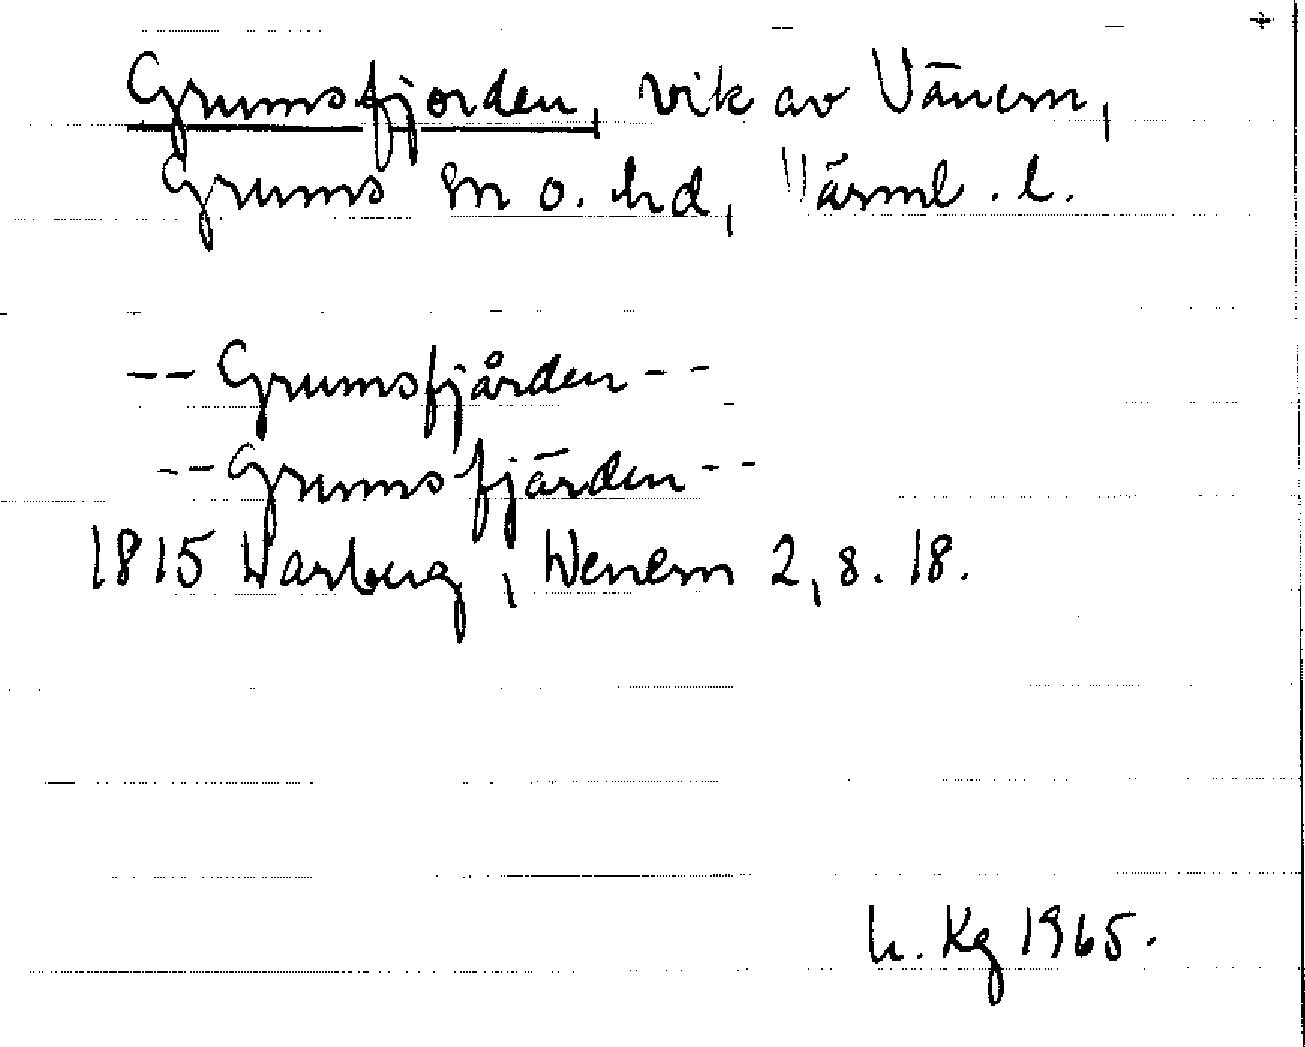 Grumsfjorden, vik av Vänern,
Grums sn o. hd, Värml. l.
-- Grumsfjården --
-- Grumsfjärden --
1815 Warberg, Wenern 2, s. 18.
h. Kg 1965.